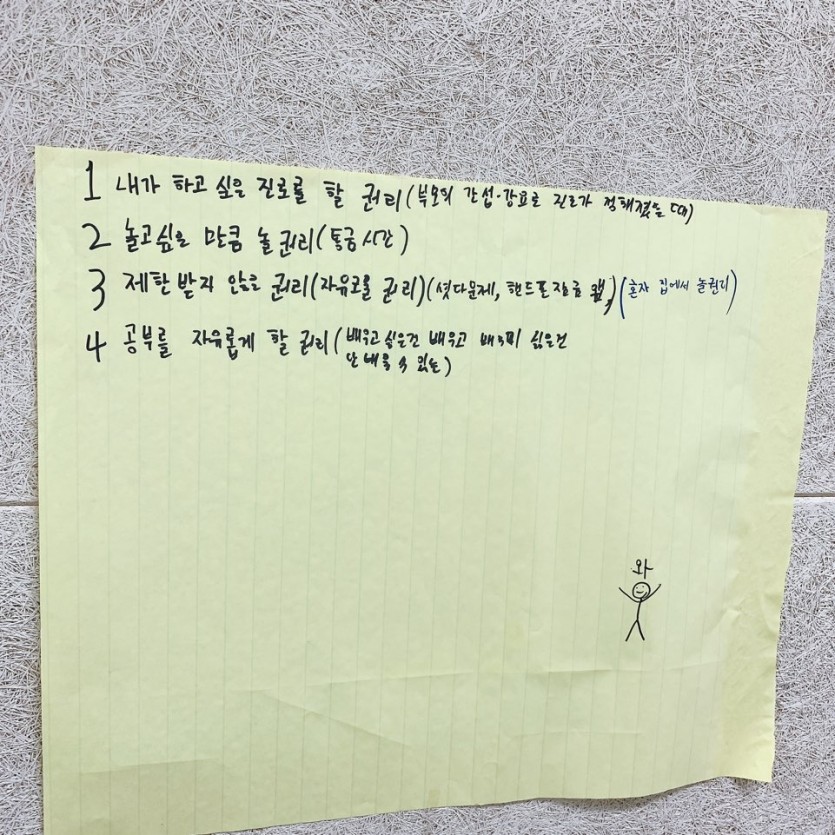 1 내가 하고 싶은 진로를 할 권리(부모의 간섭·강요로 진로가 정해졌을 때)
2 놀고싶은 만큼 놀 권리(통금시간)
3 제한받지 않을 권리(자유로울 권리)(셧다문제, 핸드폰잠금 앱,)(혼자 집에서 놀권리)
4 공부를 자유롭게 할 권리(배우고 싶은건 배우고 싶은건
안 배울 수 있는)
와